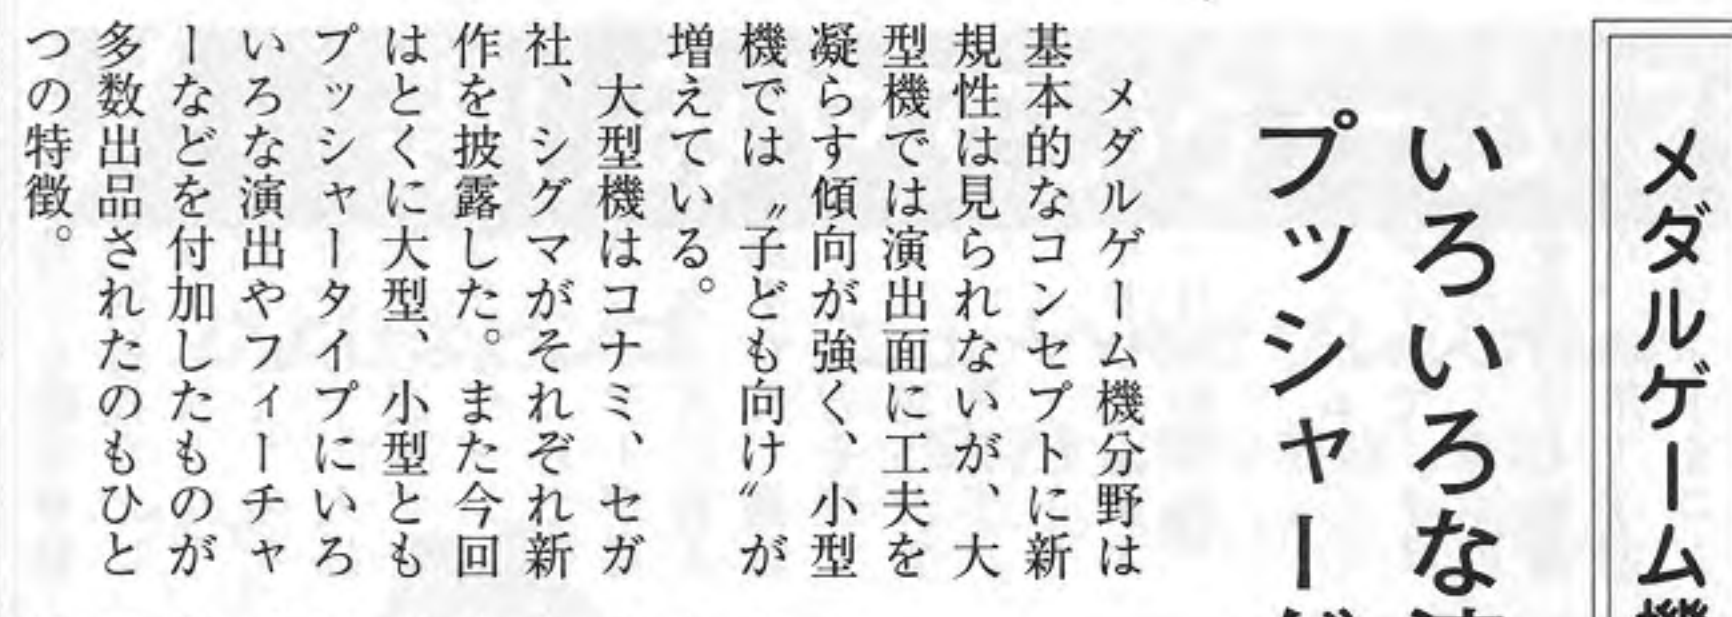 メダルゲーム機
いろいろな
プッシャー
メダルゲーム機分野は
基本的なコンセプトに新
規性は見られないが、大
型機では演出面に工夫を
凝らす傾向が強く、小型
機では〝子ども向け〟が
増えている。
大型機はコナミ、セガ
社、シグマがそれぞれ新
作を披露した。また今回
はとくに大型、小型とも
プッシャータイプにいろ
いろな演出やフィーチャ
ーなどを付加したものが
多数出品されたのもひと
つの特徴。